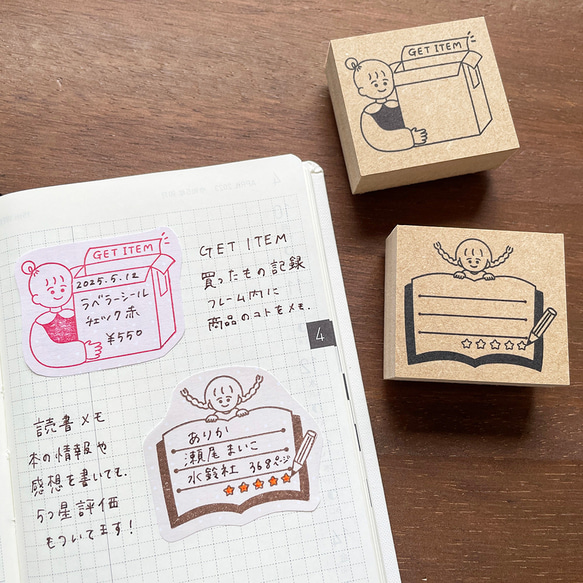 GET ITEM
GET ITEM
2025.5.12
ラベラーシール
チェック赤
¥550
GET ITEM
買ったもの記録
フレーム内に
商品のコトをメモ.
4
読書メモ
本の情報や
感想を書いても.
5つ星評価
もついてます!
ありか
瀬尾まいこ
水鈴社 368ページ